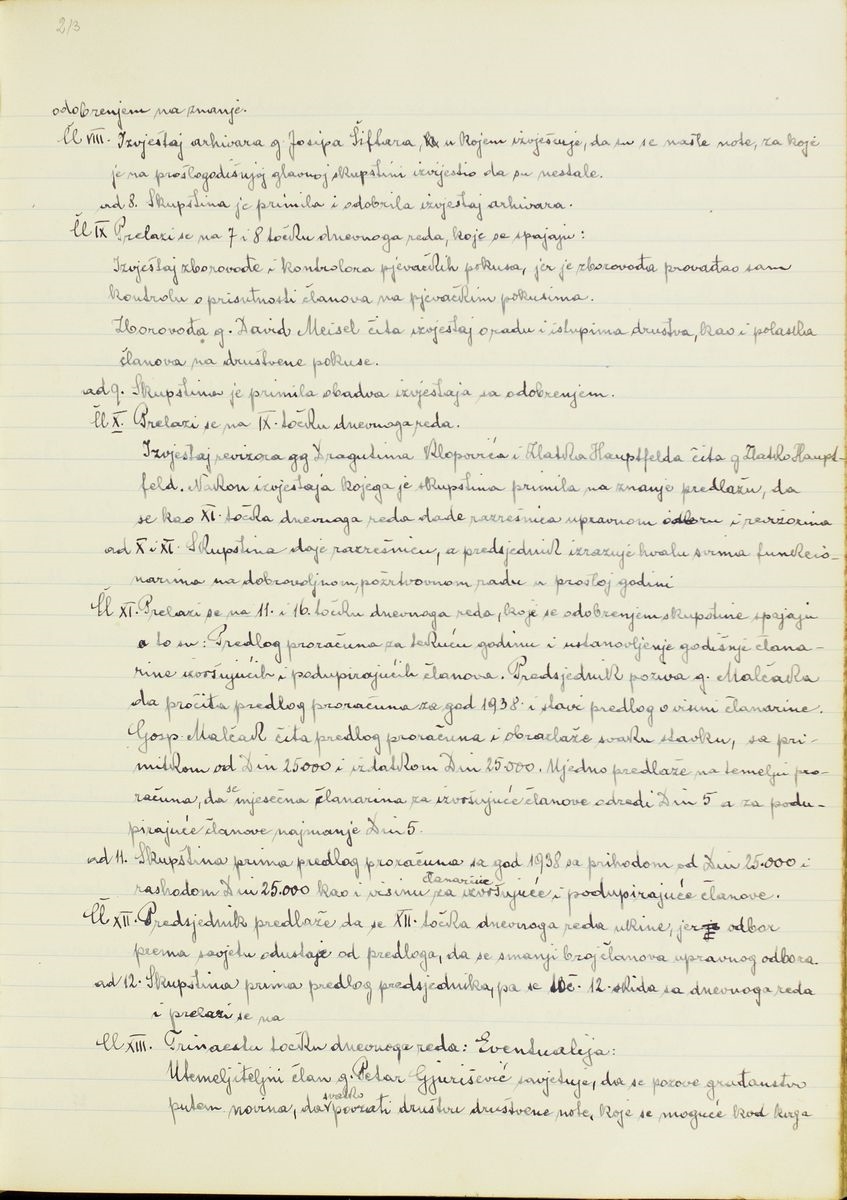 213
odobrenjem na znanje.
Čl VIII. Izvještaj arhivara g. Josipa Šiftara, u kojem izvješćuje, da su se našle note, za koje
je na prošlogodišnjoj glavnoj skupštini izvijestio da su nestale.
ad 8. Skupština je primila i odobrila izvještaj arhivara.
Čl IX Prelazi se na 7 i 8 točku dnevnoga reda, koje se spajaju:
Izvještaj zborovođe i kontrolora pjevačkih pokusa, jer je zborovođa provađao sam
kontrolu o prisutnosti članova na pjevačkim pokusima.
Zborovođa g. David Meisel čita izvještaj o radu i istupima društva, kao i polaska
članova na društvene pokuse.
ad 9. Skupština je primila obadva izvještaja sa odobrenjem.
Čl X. Prelazi se na IX. točku dnevnoga reda.
Izvještaj revizora gg Dragutina Klopovića i Zlatka Hauptfelda čita g Zlatko Haupt-
feld. Nakon izvještaja kojega je skupština primila na znanje predlažu, da
se kao XI. točka dnevnoga reda dade razrešnica upravnom odboru i revizorima
ad X i XI. Skupština daje razrešnicu, a predsjednik izrazuje hvalu svima funkcio-
narima na dobrovoljnom, požrtvovnom radu u prošloj godini
Čl XI. Prelazi se na 11. i 16. točku dnevnoga reda, koje se odobrenjem skupštine spajaju
a to su: Predlog proračuna za tekuću godinu i ustanovljenje godišnje člana-
rine izvršujućih i podupirajućih članova. Predsjednik poziva g. Malčaka
da pročita predlog proračuna za god 1938. i stavi predlog o visini članarine.
Gosp. Malčak čita predlog proračuna i obrazlaže svaku stavku, sa pri-
mitkom od Din 25.000 i izdatkom Din 25.000. Ujedno predlaže na temelju pro-
računa, da se mjesečna članarina za izvršujuće članove odredi Din 5 a za podu-
pirajuće članove najmanje Din 5.
ad 11. Skupština prima predlog proračuna sa god 1938 sa prihodom od Din 25.000 i
rashodom Din 25.000 kao i visinu članarine za izvršujuće i podupirajuće članove.
Čl XII. Predsjednik predlaže da se XII. točka dnevnoga reda ukine, jer je odbor
prema savjetu odustaje od predloga, da se smanji broj članova upravnog odbora.
ad 12. Skupština prima predlog predsjednika, pa se toč. 12. skida sa dnevnoga reda
i prelazi se na
Čl XIII. Trinaestu točku dnevnoga reda: Eventualija:
Utemeljiteljni član g. Petar Gjurišević savjetuje, da se pozove građanstvo
putem novina, da svatko povrati društvu društvene note, koje se moguće kod koga